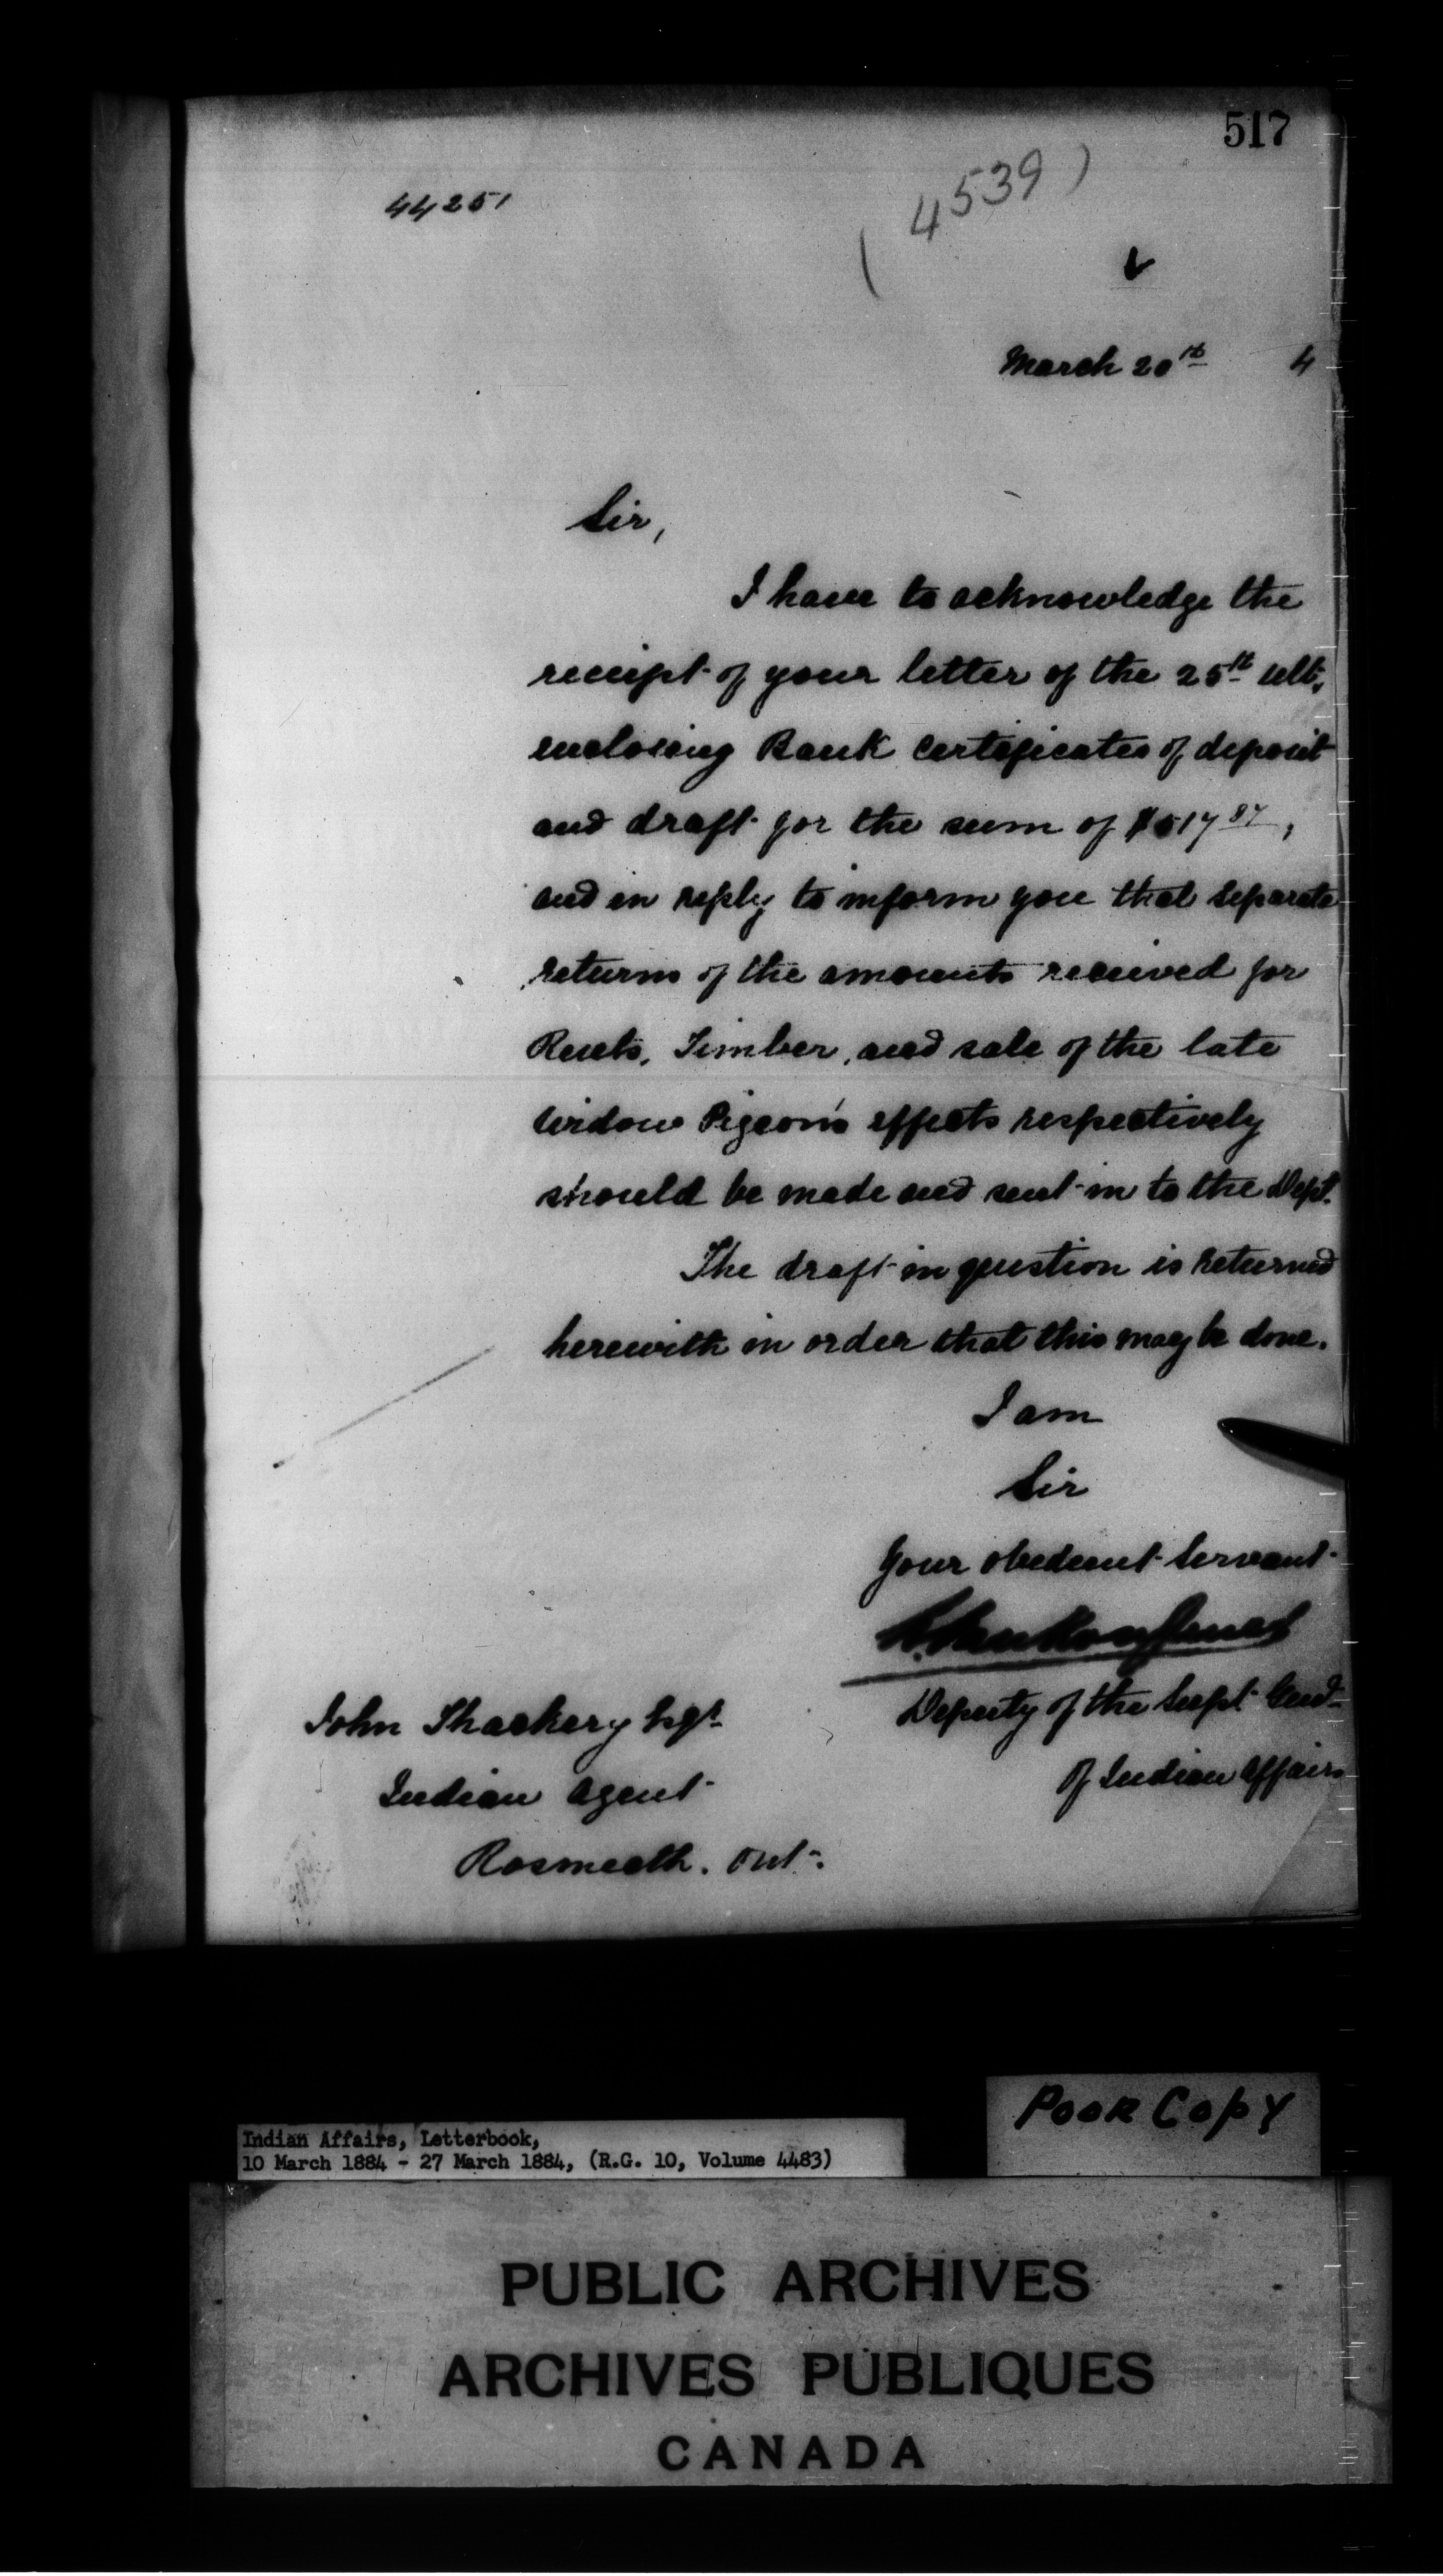 517
44251
(4539)
March 20th 4
Sir,
I have to acknowledge the
receipt of your letter of the 25th ult,
enclosing Bank certificates of deposit
and draft for the sum of $517
and in reply to inform you that separate
returns of the amounts received for
Rents, Timber, and sale of the late
Widow Pigeon's effects respectively
should be made and sent in to the Dept.
The draft in question is returned
herewith in order that this may be done.
I am
Sir
Your obedient Servant
L. VanKoughnet
Deputy of the Supt Genl
of Indian Affairs
John Thackery Esqr
Indian Agent
Rosneath. Ont.
Poor Copy
Indian Affairs, Letterbook,
10 March 1884 - 27 March 1884, (R.G. 10, Volume 4483)
PUBLIC ARCHIVES
ARCHIVES PUBLIQUES
CANADA